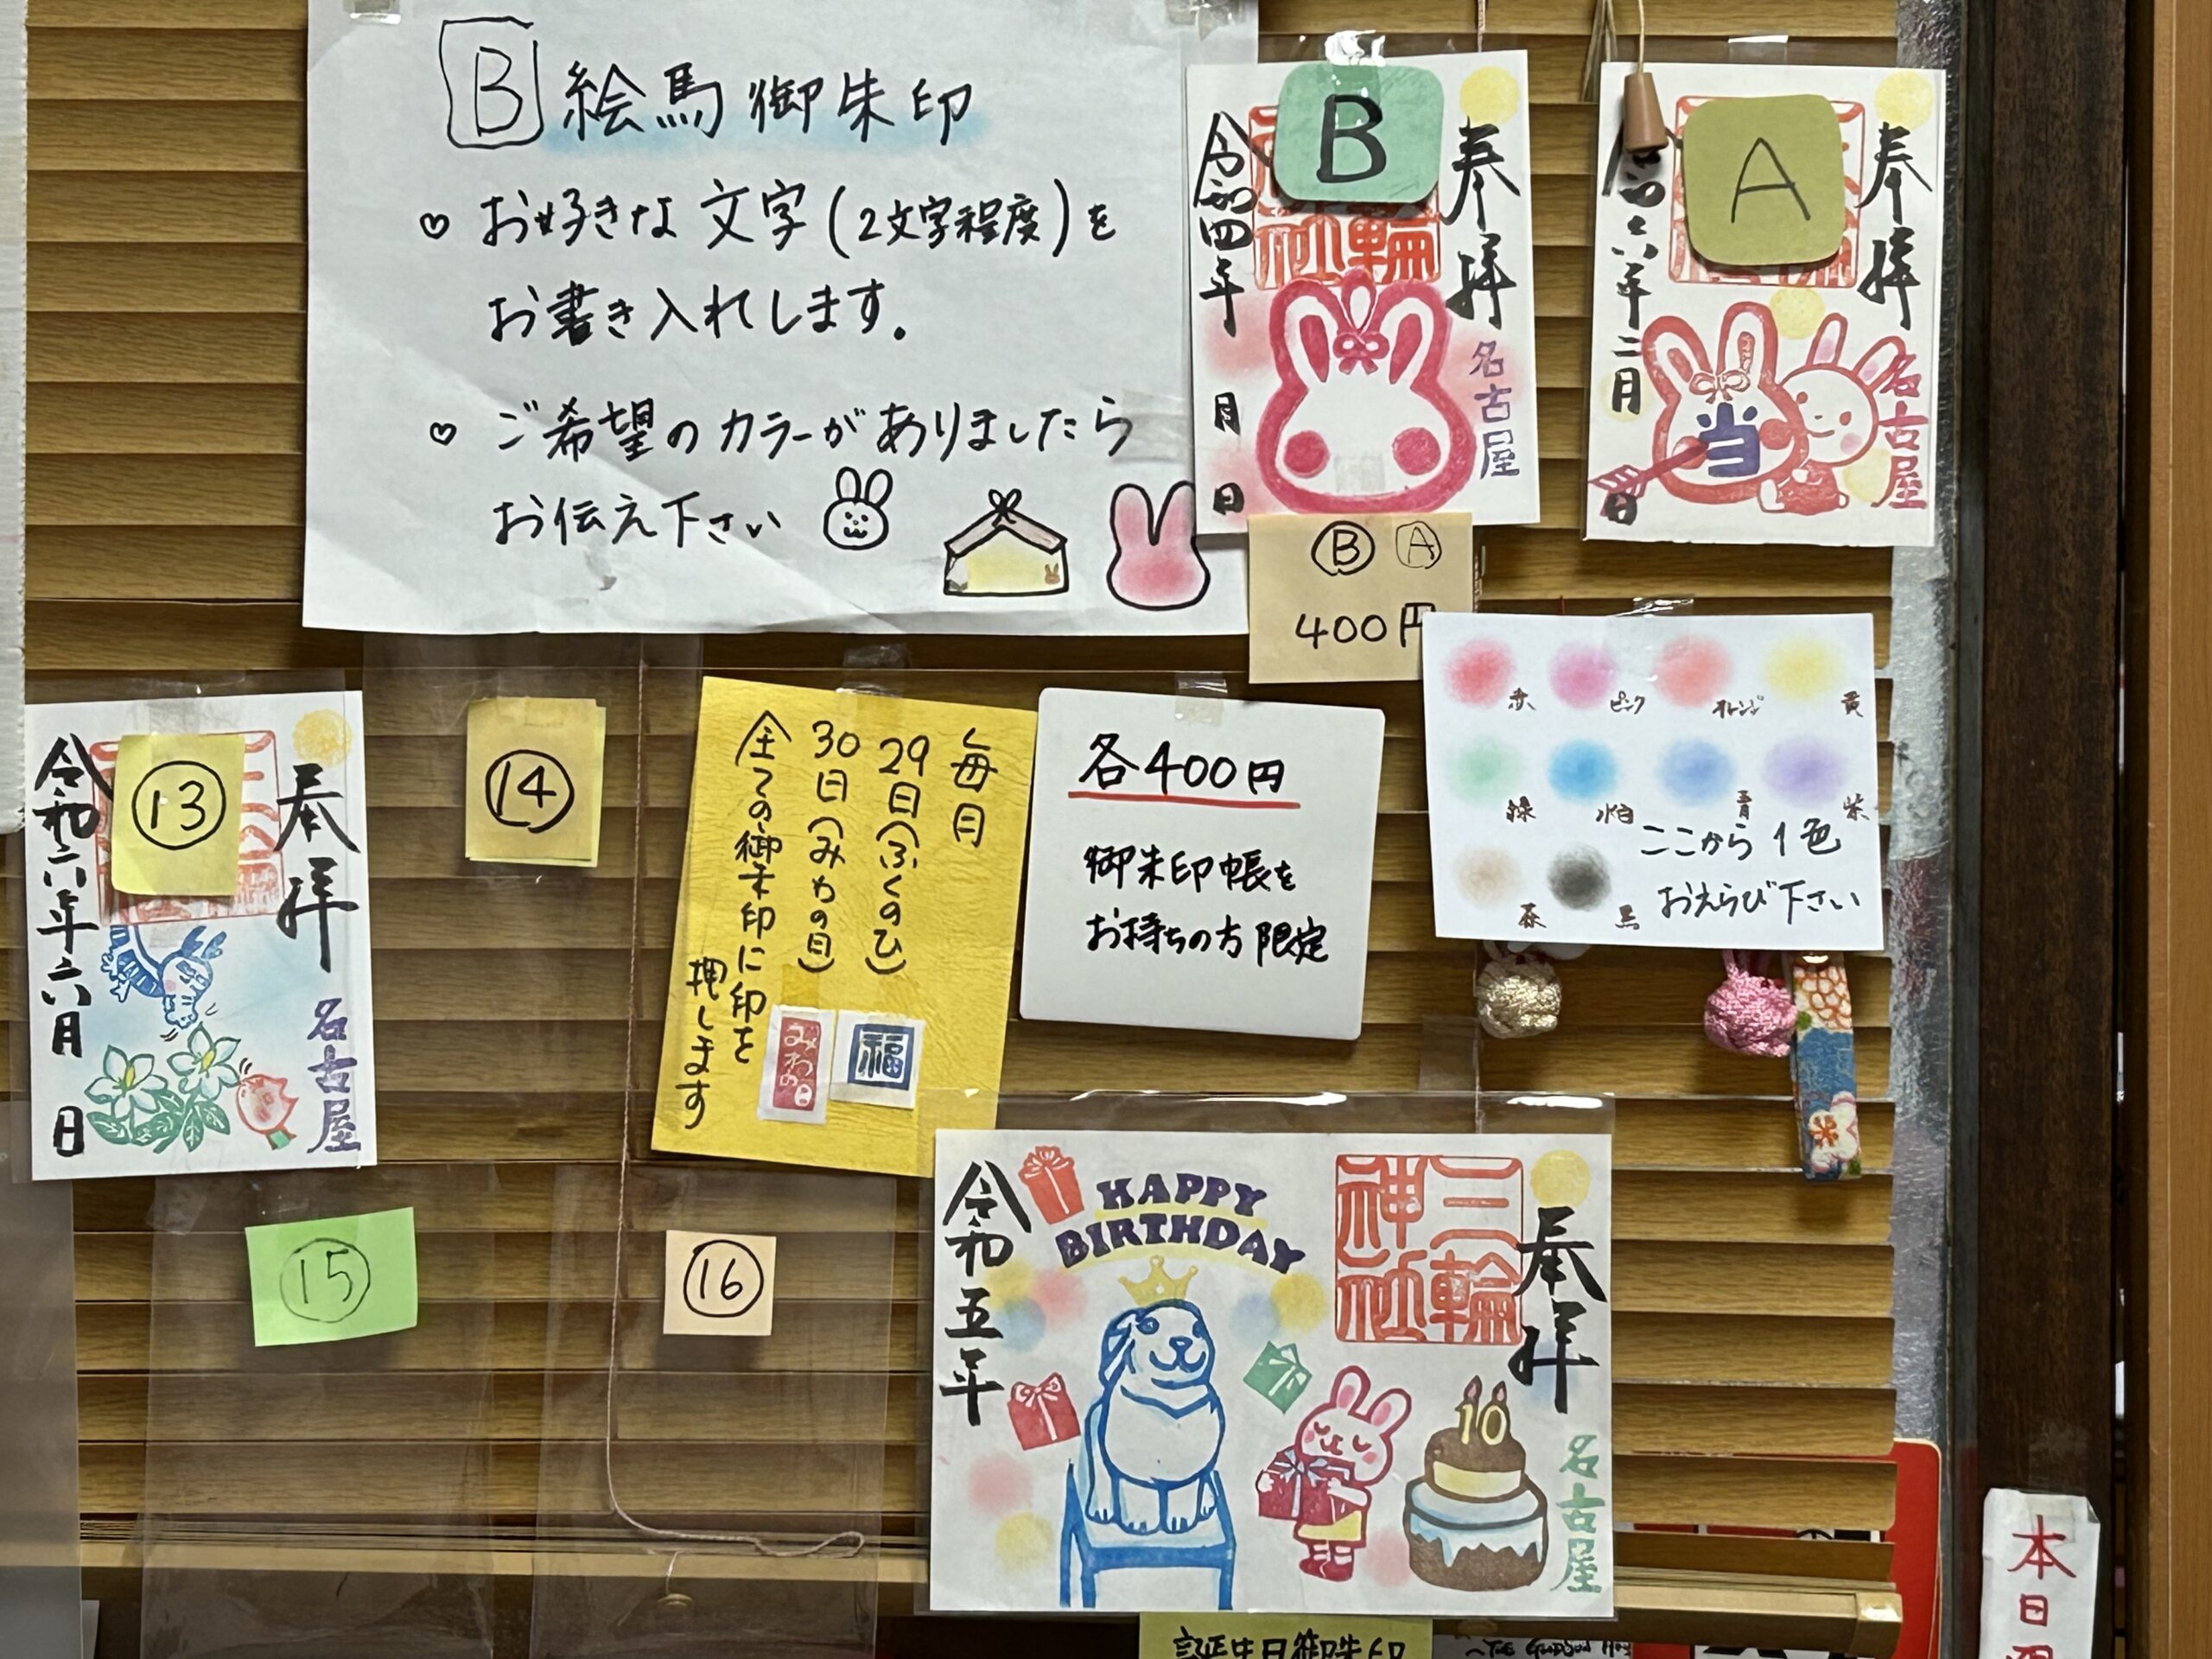 B 絵馬御朱印
♡ お好きな文字(2文字程度)を
お書き入れします。
♡ ご希望のカラーがありましたら
お伝え下さい
B
奉拝
令和四年 月 日
名古屋
A
奉拝
六年二月 日
当
名古屋
Ⓑ Ⓐ
400円
赤 ピンク オレンジ 黄
緑 水色 青 紫
茶 黒
ここから1色
おえらび下さい
⑬
奉拝
令和六年六月 日
名古屋
⑭
毎月
29日(ふくのひ)
30日(みわの日)
全ての御朱印に印を
押します
福
みわの日
各400円
御朱印帳を
お持ちの方限定
⑮
⑯
奉拝
三輪
神社
HAPPY
BIRTHDAY
令和五年
10
名古屋
誕生日御朱印
本日